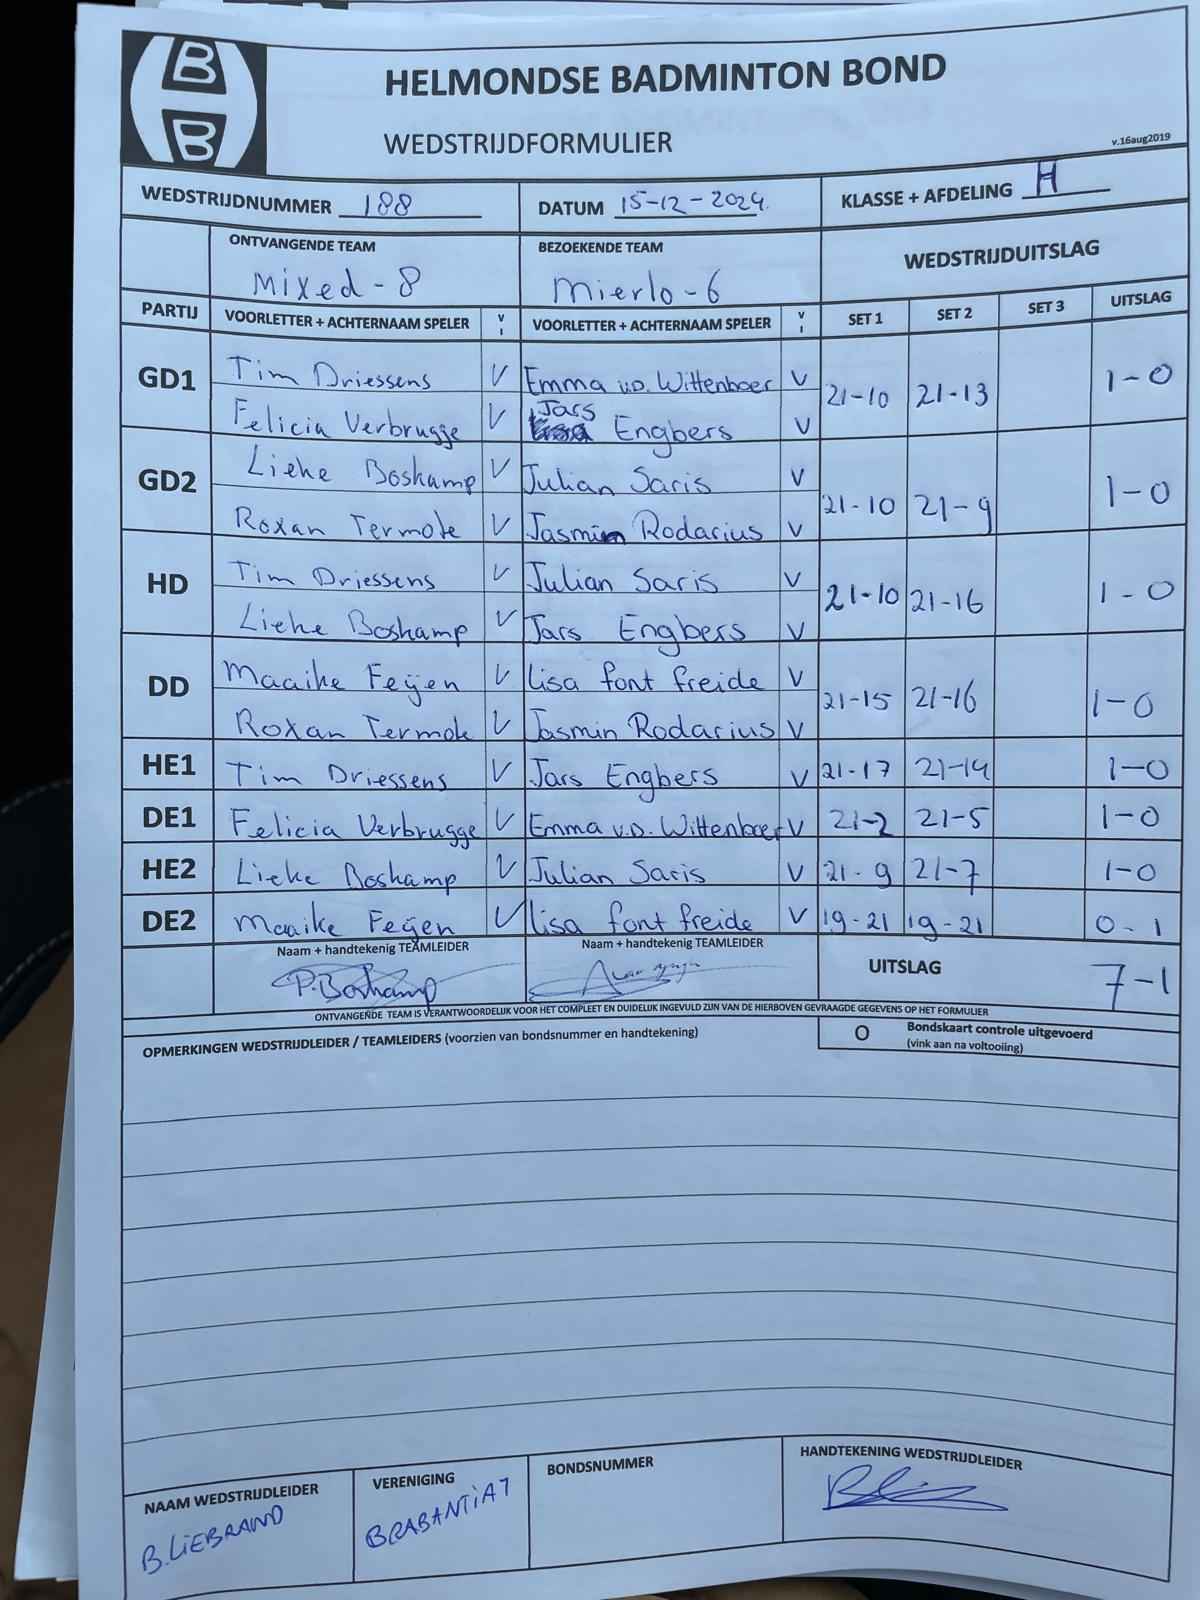 B
B
HELMONDSE BADMINTON BOND
WEDSTRIJDFORMULIER
v.16aug2019
WEDSTRIJDNUMMER 188 DATUM 15-12-2024. KLASSE + AFDELING H
ONTVANGENDE TEAM BEZOEKENDE TEAM WEDSTRIJDUITSLAG
Mixed-8 Mierlo-6
PARTIJ VOORLETTER + ACHTERNAAM SPELER V I VOORLETTER + ACHTERNAAM SPELER V I SET 1 SET 2 SET 3 UITSLAG
GD1 Tim Driessens V Emma v.D. Wittenboer V 21-10 21-13 1-0
Felicia Verbrugge V Jars Engbers V
GD2 Lieke Boskamp V Julian Saris V 21-10 21-9 1-0
Roxan Termote V Jasmin Rodarius V
HD Tim Driessens V Julian Saris V 21-10 21-16 1-0
Lieke Boskamp V Jars Engbers V
DD Maaike Feijen V Lisa font freide V 21-15 21-16 1-0
Roxan Termote V Jasmin Rodarius V
HE1 Tim Driessens V Jars Engbers V 21-17 21-14 1-0
DE1 Felicia Verbrugge V Emma v.D. Wittenboer V 21-2 21-5 1-0
HE2 Lieke Boskamp V Julian Saris V 21-9 21-7 1-0
DE2 Maaike Feijen V Lisa font freide V 19-21 19-21 0-1
Naam + handtekenig TEAMLEIDER Naam + handtekenig TEAMLEIDER UITSLAG 7-1
P.Boskamp
ONTVANGENDE TEAM IS VERANTWOORDELIJK VOOR HET COMPLEET EN DUIDELIJK INGEVULD ZIJN VAN DE HIERBOVEN GEVRAAGDE GEGEVENS OP HET FORMULIER
OPMERKINGEN WEDSTRIJDLEIDER / TEAMLEIDERS (voorzien van bondsnummer en handtekening) O Bondskaart controle uitgevoerd
(vink aan na voltooiing)
NAAM WEDSTRIJDLEIDER VERENIGING BONDSNUMMER HANDTEKENING WEDSTRIJDLEIDER
B.LIEBRAND BRABANTIAT